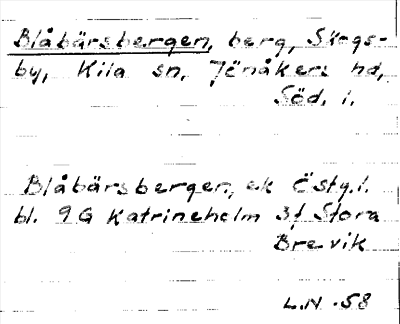 Blåbärsbergen, berg, Skogs-
by, Kila sn, Jönåkers hd,
Söd. l.
Blåbärsbergen, ek Östg.l.
bl. 9G Katrineholm 3f Stora
Brevik
L.N -58